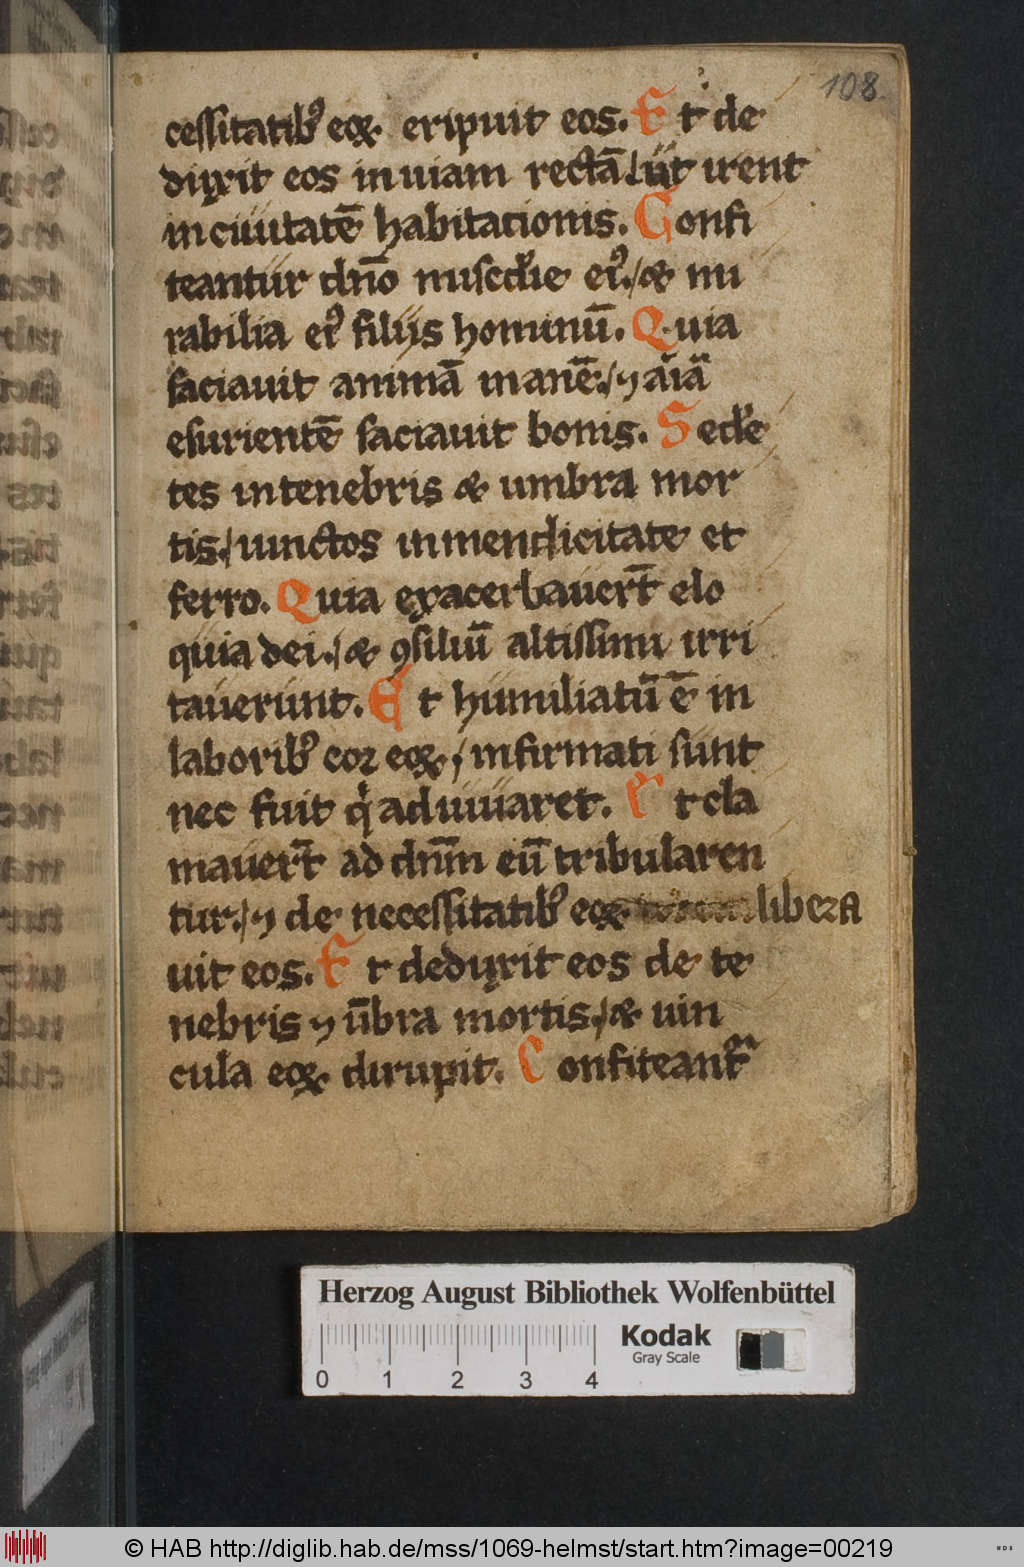 108
cessitatibꝰ eoꝝ eripuit eos. Et de
duxit eos in uiam rectā / ut irent
in ciuitatē habitacionis. Confi
teantur dn̄o misc̄die eiꝰ. / & mi
rabilia eiꝰ filijs hominū. Quia
saciauit animā inanē. / ⁊ aīa
esurientē saciauit bonis. Sede
tes in tenebris & umbra mor
tis. / uinctos in mendicitate et
ferro. Quia exacerbauert̄ elo
quia dei. / & ꝯsiliū altissimi irri
tauerunt. Et humiliatū ē in
laboribꝰ cor eoꝝ / infirmati sunt
nec fuit qͥ adiuuaret. Et cla
mauert̄ ad dn̄m cū tribularen
tur. / ⁊ de necessitatibꝰ eoꝝ libera
uit eos. Et deduxit eos de te
nebris ⁊ ūbra mortis. / & uin
cula eoꝝ dirupit. Confiteant᷑
Herzog August Bibliothek Wolfenbüttel
Kodak
Gray Scale
0 1 2 3 4
© HAB http://diglib.hab.de/mss/1069-helmst/start.htm?image=00219